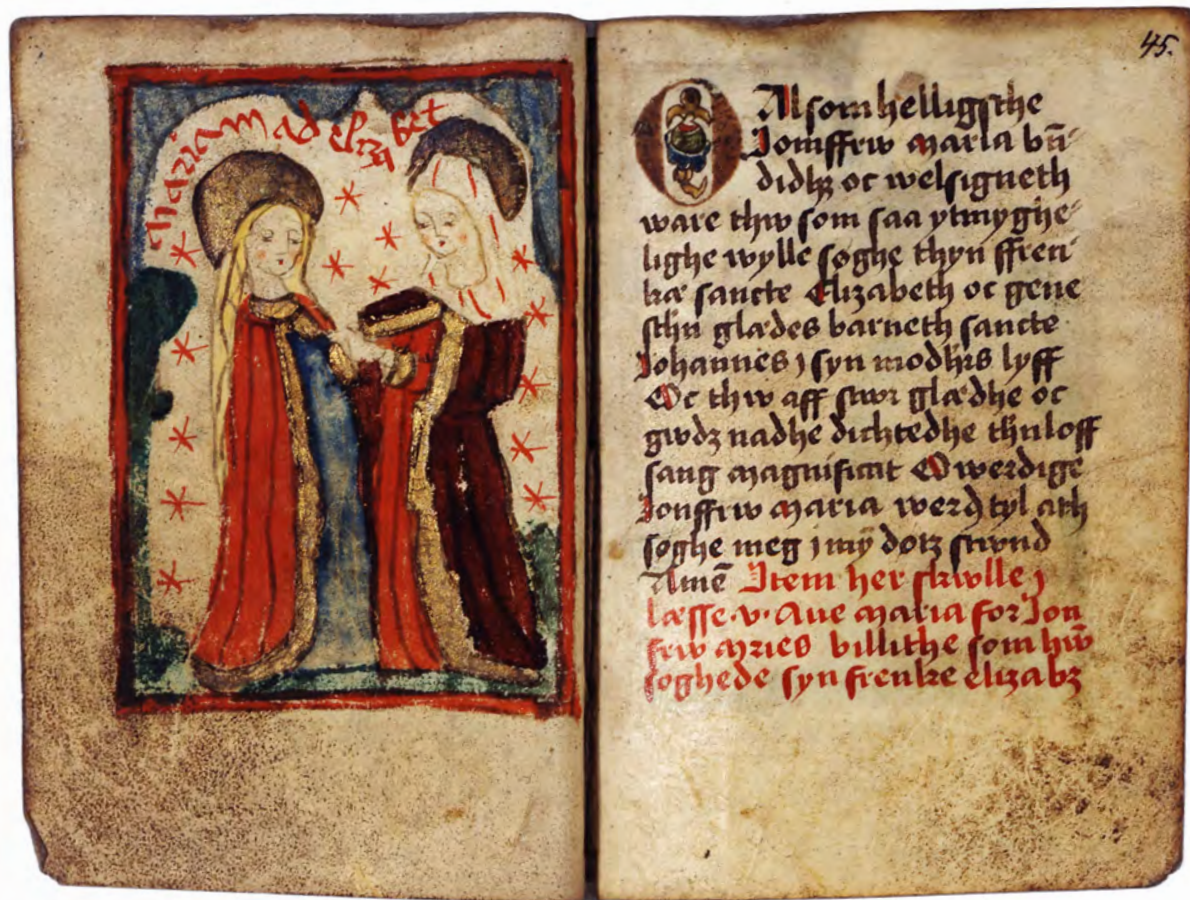 mariam ad elizabet
45.
O Alsom helligsthe
Jomffrw maria bñ
didhz oc welsigneth
ware thw som saa ytmyghe
lighe wylle søghe thyn ffren
kæ sancte Elizabeth oc gene
sthn glædes barneth sancte
Johannes j syn modhrs lyff
Oc thw aff stwr glædhe oc
gwdz nadhe dichtedhe thn loff
sang magnificat O werdige
Jonffrw maria werd tyl ath
søghe meg j mÿ dotz stwnd
Amē Item her skwlle j
læsse .v. Aue maria for Jon
frw mries billithe som hw̄
søghede syn frenke elizabz